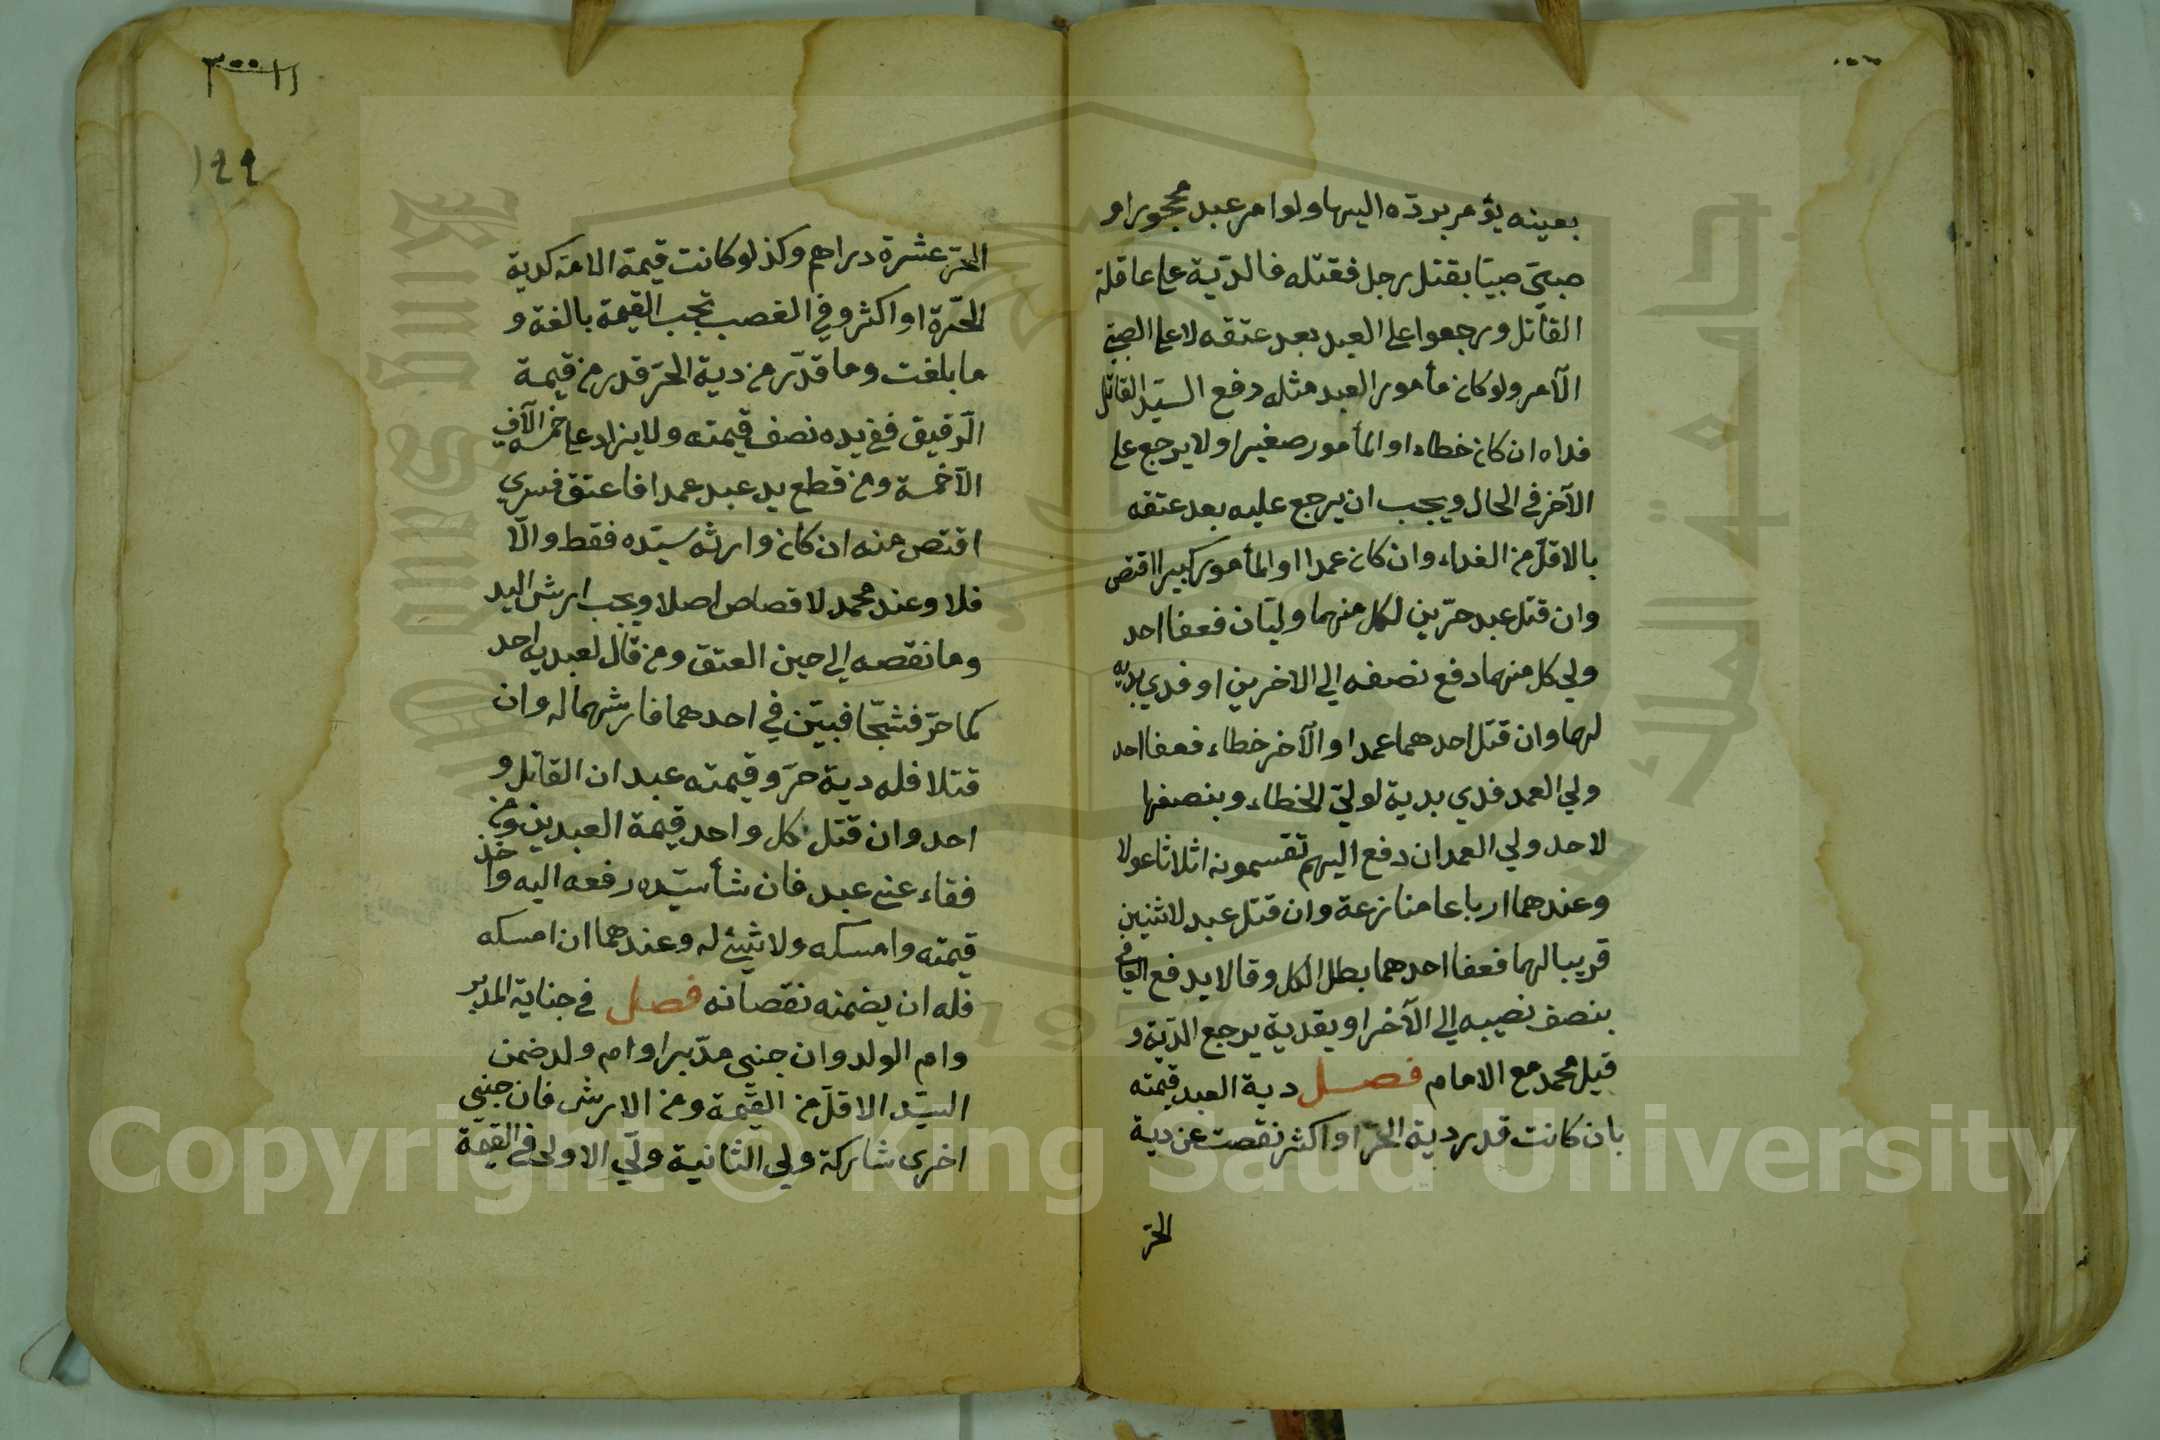 بعينه يؤمر بردّه اليها ولو امر عبد محجورا و
صبيّ صبيّا بقتل رجل فقتله فالدّية على عاقلة
القاتل ورجعوا على العبد بعد عتقه لا على الصبيّ
الآمر ولو كان مأمور العبد مثله دفع السيّد القاتل
فداه ان كان خطاء او المأمور صغيرا ولا يرجع على
الآخر في الحال ويجب ان يرجع عليه بعد عتقه
بالاقلّ من الفداء وان كان عمدا او المأمور كبيرا اقتص
وان قتل عبد حرّين لكل منهما وليّان فعفا احد
ولي كل منهما دفع نصفه الى الاخرين او فدي بديه
لهما وان قتل احدهما عمدا والآخر خطاء فعفا احد
ولي العمد فدي بدية لوليّ الخطاء وبنصفها
لاحد ولي العمد ان دفع اليهم تقسمونه اثلاثا عولا
وعندهما ارباعا منازعة وان قتل عبد لاثنين
قريبا لهما فعفا احدهما بطل الكل وقالا يدفع العافي
بنصف نصيبه الى الآخر او يفدية يرجع الدّية و
قيل محمد مع الامام فصل دية العبد قيمته
بان كانت قدر دية الحرّ او اكثر نقصت عن دية
الحرّ
٣٠٠١١
١٩٩
الحرّ عشرة دراهم وكذ لو كانت قيمة الامة كدية
الحرّة او اكثر وفي الغصب تجب القيمة بالغة و
ما بلغت وما قدّر من دية الحرّ قدر من قيمة
الرّقيق ففي يده نصف قيمته ولا يزاد على خمسة آلاف
الاّ خمسة ومن قطع يد عبد عمدا فاعتق فسري
اقتص منه ان كان وارثه سيّده فقط والاّ
فلا وعند محمد لا قصاص اصلا ويجب ارش اليد
وما نقصه الى حين العتق ومن قال لعبديه احد
كما حرّ فشجّا فبيّن في احدهما فارشهما له وان
قتلا فله دية حرّ وقيمته عبد ان القاتل و
احد وان قتل كل واحد قيمة العبدين ومن
فقاء عني عبد فان شأ سيّده دفعه اليه واخذ
قيمته وامسكه ولا شيئ له وعندهما ان امسكه
فله ان يضمنه نقصانه فصل في جناية المدبر
وام الولد وان جنى مدّبرا او ام ولد ضمن
السيّد الاقلّ من القيمة ومن الارش فان جنى
اخرى شاركة ولي الثانية وليّ الاولى في القيمة
Copyright © King Saud University
King Saud University
جامعة الملك سعود
1957